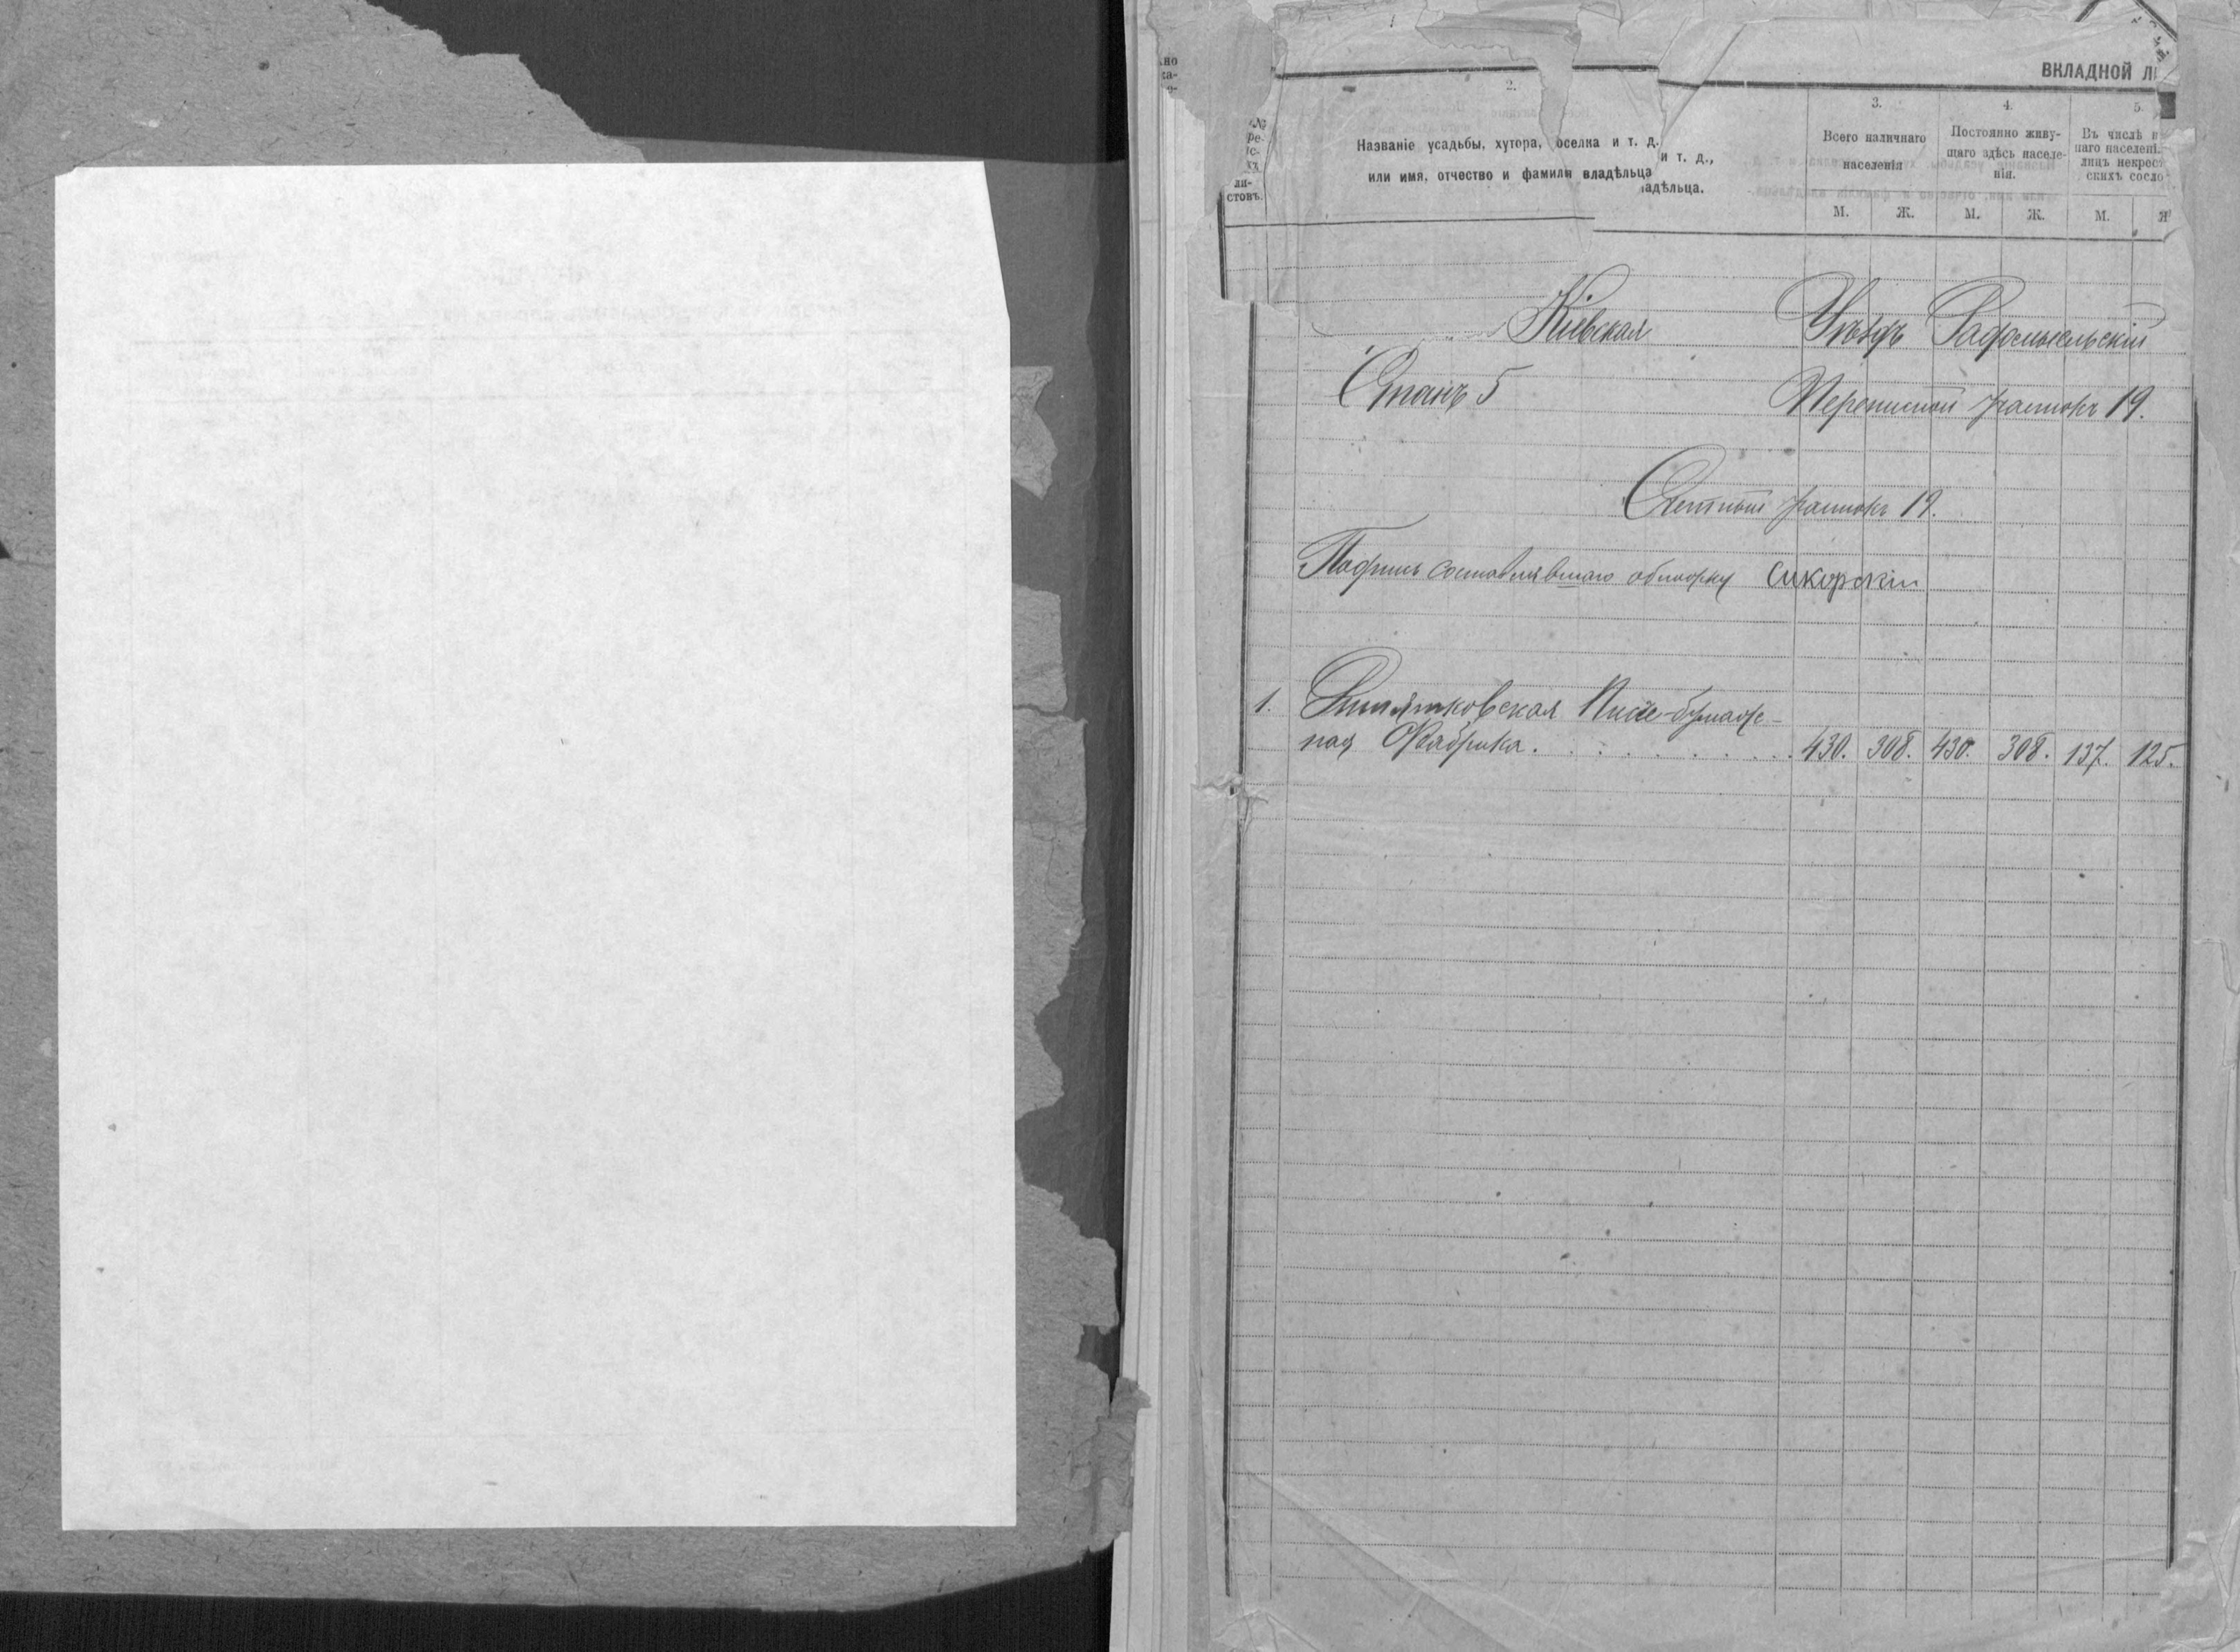 ВКЛАДНОЙ
2.
3.
4.
5.
Названіе усадьбы, хутора, оселка и т. д.
и т. д.,
или имя, отчество и фамилія владѣльца
адѣльца.
ли-
стовъ.
Всего наличнаго
населенія
Постоянно живу-
щаго здѣсь населе-
нія.
Въ числѣ
наго населені
лицъ некрес
скихъ сосло
М. Ж. М. Ж. М.
Кіевская Уѣздъ Радомысльскій
Станъ 5 Переписной участокъ 19.
Счетный участокъ 19.
Подпись составлявшаго обложку Сикорскій
1. Писче-бумаж-
ная Фабрика. 430. 308. 430. 308. 137. 125.